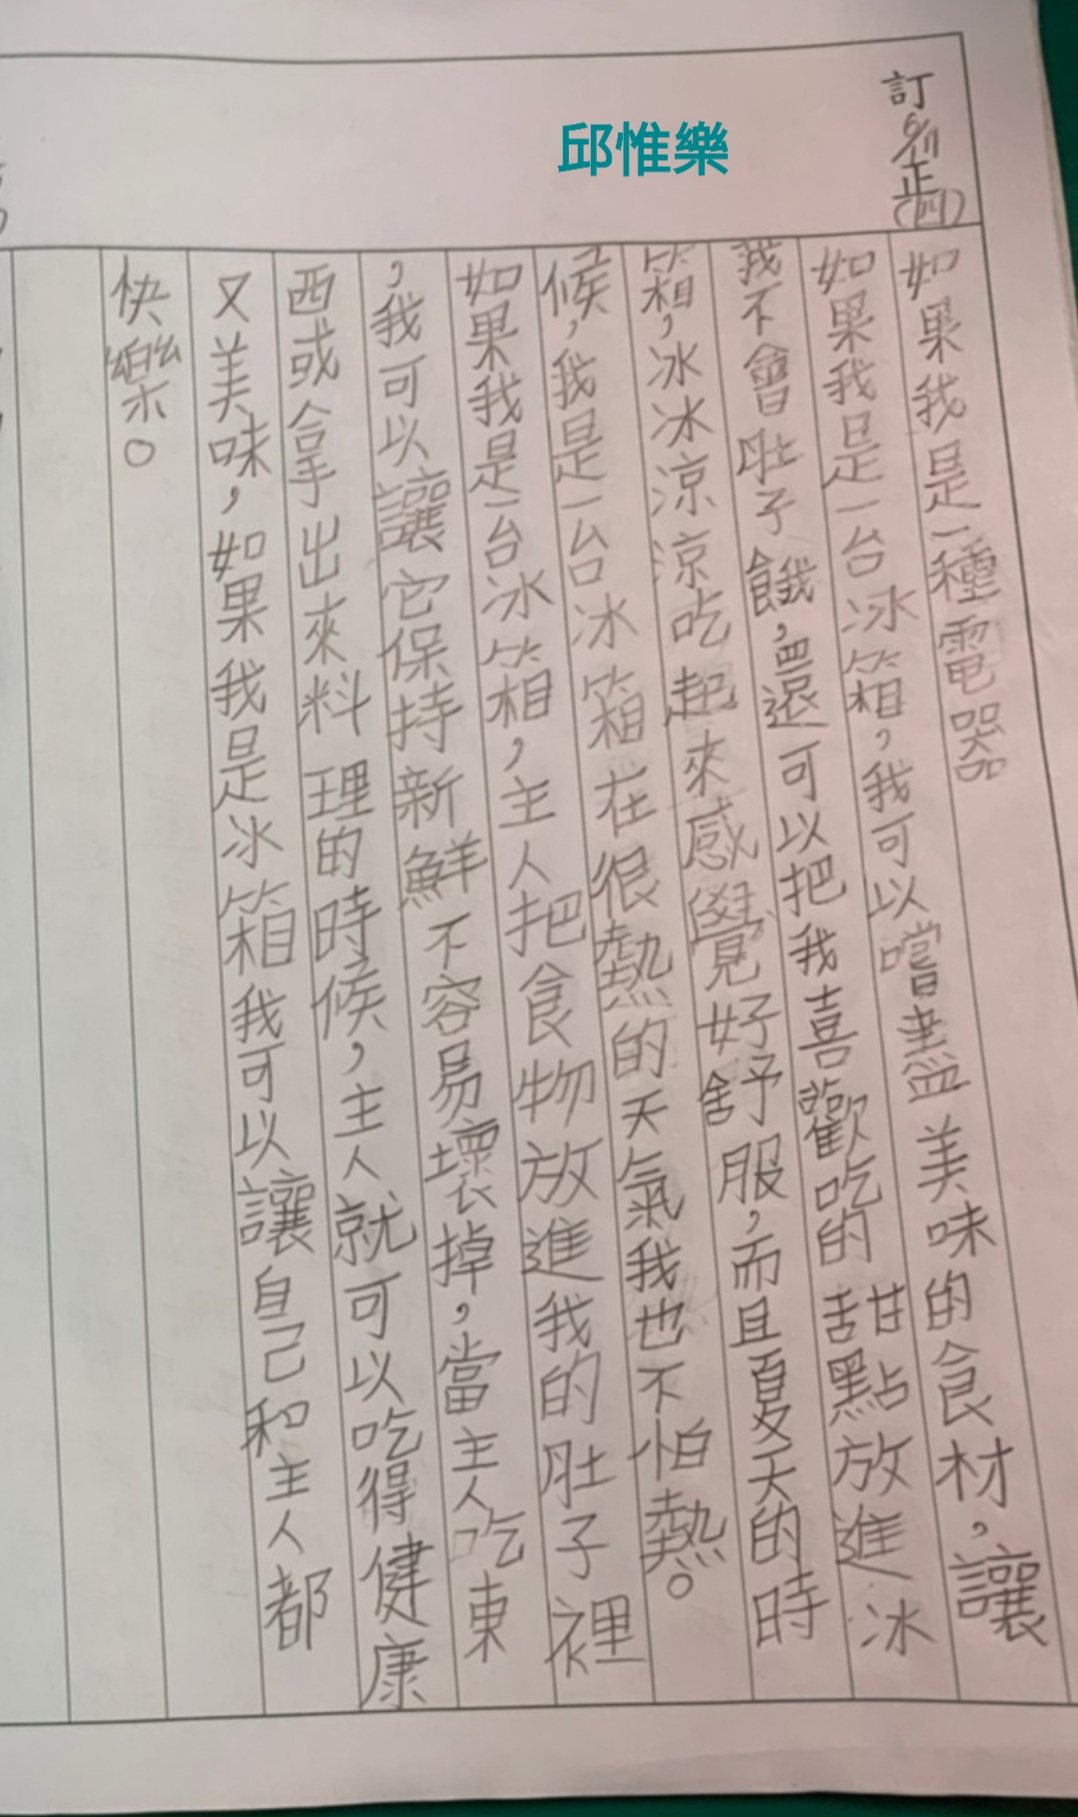 邱惟樂
訂正
如果我是一種電器
如果我是一台冰箱，我可以嚐盡美味的食材，讓
我不會肚子餓，還可以把我喜歡吃的甜點放進冰
箱，冰冰涼涼吃起來感覺好舒服，而且夏天的時
候，我是一台冰箱在很熱的天氣我也不怕熱。
如果我是一台冰箱，主人把食物放進我的肚子裡
，我可以讓它保持新鮮不容易壞掉，當主人吃東
西或拿出來料理的時候，主人就可以吃得健康
又美味，如果我是冰箱我可以讓自己和主人都
快樂。